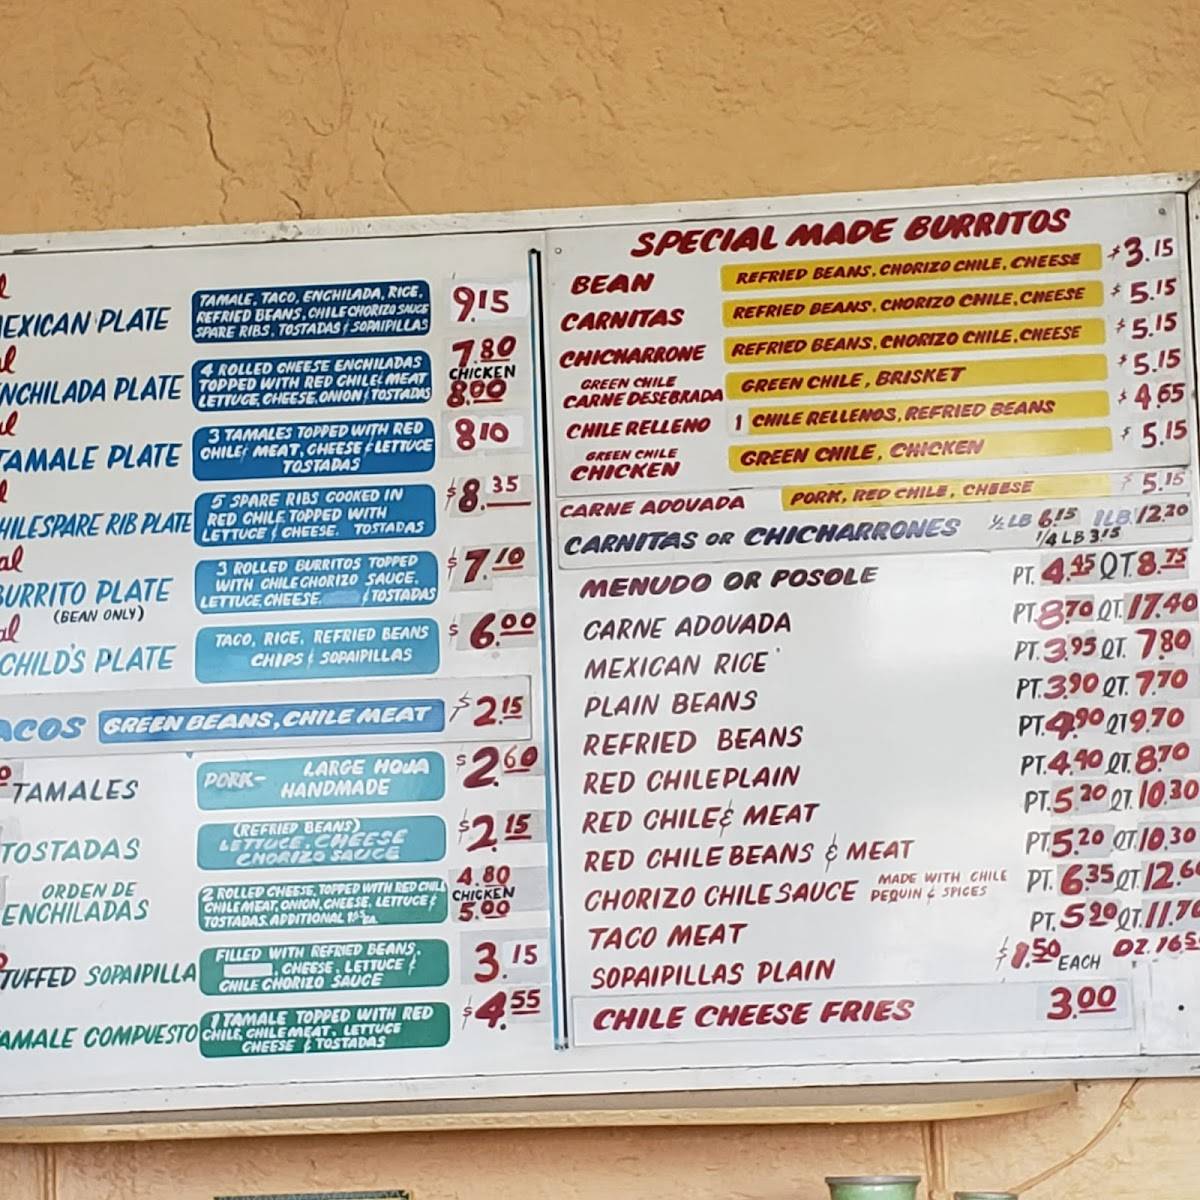 EXICAN PLATE
TAMALE, TACO, ENCHILADA, RICE,
REFRIED BEANS, CHILE CHORIZO SAUCE
SPARE RIBS, TOSTADAS & SOPAIPILLAS
9.15
NCHILADA PLATE
4 ROLLED CHEESE ENCHILADAS
TOPPED WITH RED CHILE & MEAT
LETTUCE, CHEESE, ONION & TOSTADAS
7.80
CHICKEN
8.00
TAMALE PLATE
3 TAMALES TOPPED WITH RED
CHILE & MEAT, CHEESE & LETTUCE
TOSTADAS
8.10
HILE SPARE RIB PLATE
5 SPARE RIBS COOKED IN
RED CHILE TOPPED WITH
LETTUCE & CHEESE. TOSTADAS
$8.35
BURRITO PLATE
(BEAN ONLY)
3 ROLLED BURRITOS TOPPED
WITH CHILE CHORIZO SAUCE,
LETTUCE, CHEESE & TOSTADAS
$7.10
CHILD'S PLATE
TACO, RICE, REFRIED BEANS
CHIPS & SOPAIPILLAS
$6.00
ACOS GREEN BEANS, CHILE MEAT $2.15
TAMALES
PORK- LARGE HOJA
HANDMADE
$2.60
TOSTADAS
(REFRIED BEANS)
LETTUCE, CHEESE
CHORIZO SAUCE
$2.15
ORDEN DE
ENCHILADAS
2 ROLLED CHEESE, TOPPED WITH RED CHILE
CHILE MEAT, ONION, CHEESE, LETTUCE &
TOSTADAS. ADDITIONAL
4.80
CHICKEN
5.00
TUFFED SOPAIPILLA
FILLED WITH REFRIED BEANS,
, CHEESE, LETTUCE &
CHILE CHORIZO SAUCE
3.15
AMALE COMPUESTO
1 TAMALE TOPPED WITH RED
CHILE, CHILE MEAT, LETTUCE
CHEESE & TOSTADAS
$4.55
SPECIAL MADE BURRITOS
BEAN REFRIED BEANS, CHORIZO CHILE, CHEESE $3.15
CARNITAS REFRIED BEANS, CHORIZO CHILE, CHEESE $5.15
CHICHARRONE REFRIED BEANS, CHORIZO CHILE, CHEESE $5.15
GREEN CHILE
CARNE DESEBRADA GREEN CHILE, BRISKET $5.15
CHILE RELLENO 1 CHILE RELLENOS, REFRIED BEANS $4.65
GREEN CHILE
CHICKEN GREEN CHILE, CHICKEN $5.15
CARNE ADOVADA PORK, RED CHILE, CHEESE $5.15
CARNITAS OR CHICHARRONES ½ LB 6.15 1LB. 12.20
1/4 LB 3.15
MENUDO OR POSOLE PT. 4.45 QT 8.75
CARNE ADOVADA PT. 8.70 QT. 17.40
MEXICAN RICE PT. 3.95 QT. 7.80
PLAIN BEANS PT. 3.90 QT. 7.70
REFRIED BEANS PT. 4.90 QT 9.70
RED CHILE PLAIN PT. 4.40 QT. 8.70
RED CHILE & MEAT PT. 5.20 QT. 10.30
RED CHILE BEANS & MEAT PT. 5.20 QT. 10.30
CHORIZO CHILE SAUCE MADE WITH CHILE PEQUIN & SPICES PT. 6.35 QT. 12.60
TACO MEAT PT. 5.90 QT. 11.70
SOPAIPILLAS PLAIN $1.50 EACH DZ. 16.5
CHILE CHEESE FRIES 3.00